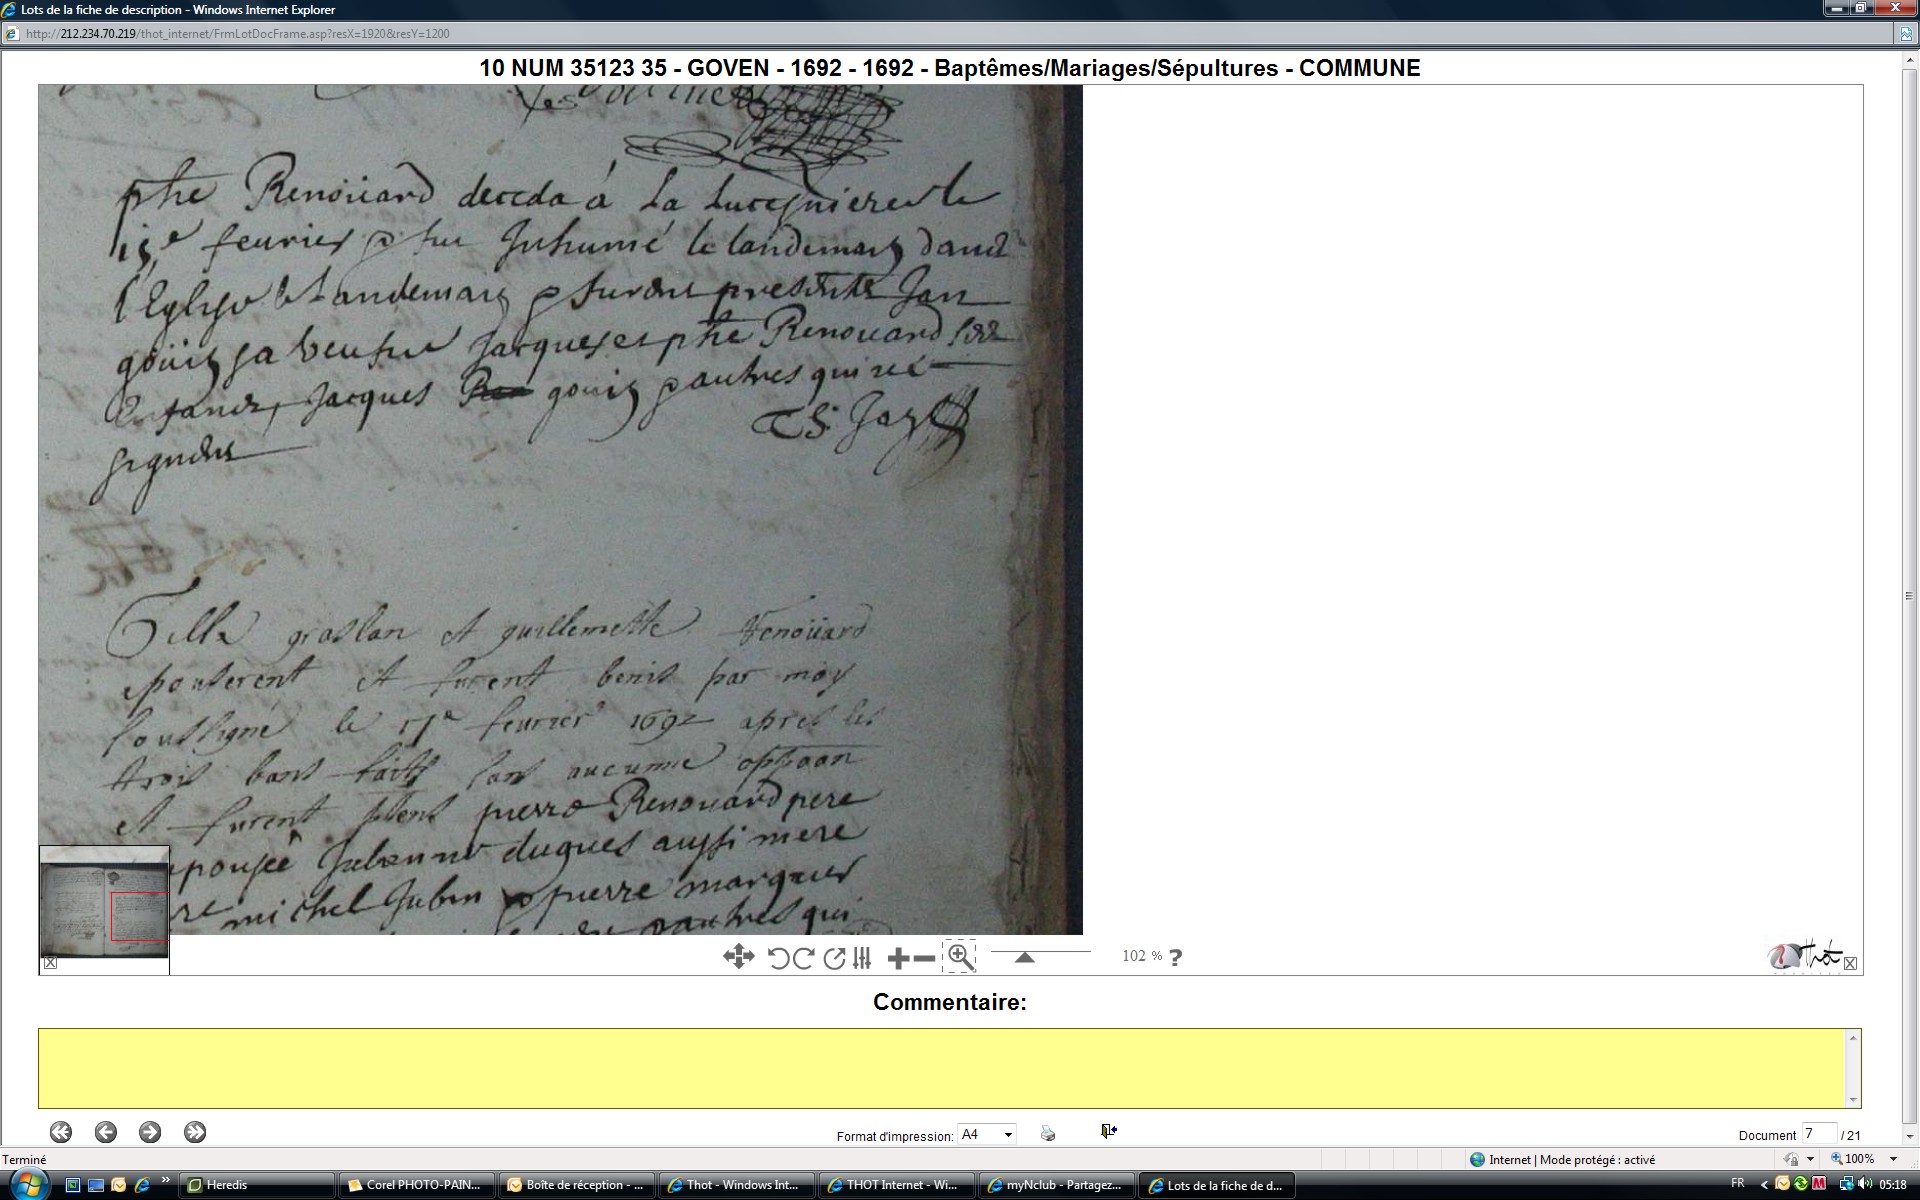 Lots de la fiche de description - Windows Internet Explorer
http://212.234.70.219/thot_internet/FrmLotDocFrame.asp?resX=1920&resY=1200
10 NUM 35123 35 - GOVEN - 1692 - 1692 - Baptêmes/Mariages/Sépultures - COMMUNE
phe Renoüard deceda á la
feurier fut Inhumé le landemain dans
l'Eglise le Landemain furent presents Jan
goüin sa veufue Jacques et phe Renouard ses
Enfants, Jacques gouin autres qui ne
signent
Gille graslan et guillemette Renoüard
epouserent et furent benis par moy
soussigné le 17e feurier 1692 apres les
trois bans faits sans aucune oppoon
et furent pierre Renouard pere
epousée dugues aussi mere
michel Jubin pierre marquer
autres qui
102 %
Thot
Commentaire:
Format d'impression: A4
Document 7 / 21
Terminé
Internet | Mode protégé : activé
100%
Heredis
Corel PHOTO-PAIN...
Boîte de réception - ...
Thot - Windows Int...
THOT Internet - Wi...
myNclub - Partagez...
Lots de la fiche de d...
FR
05:18